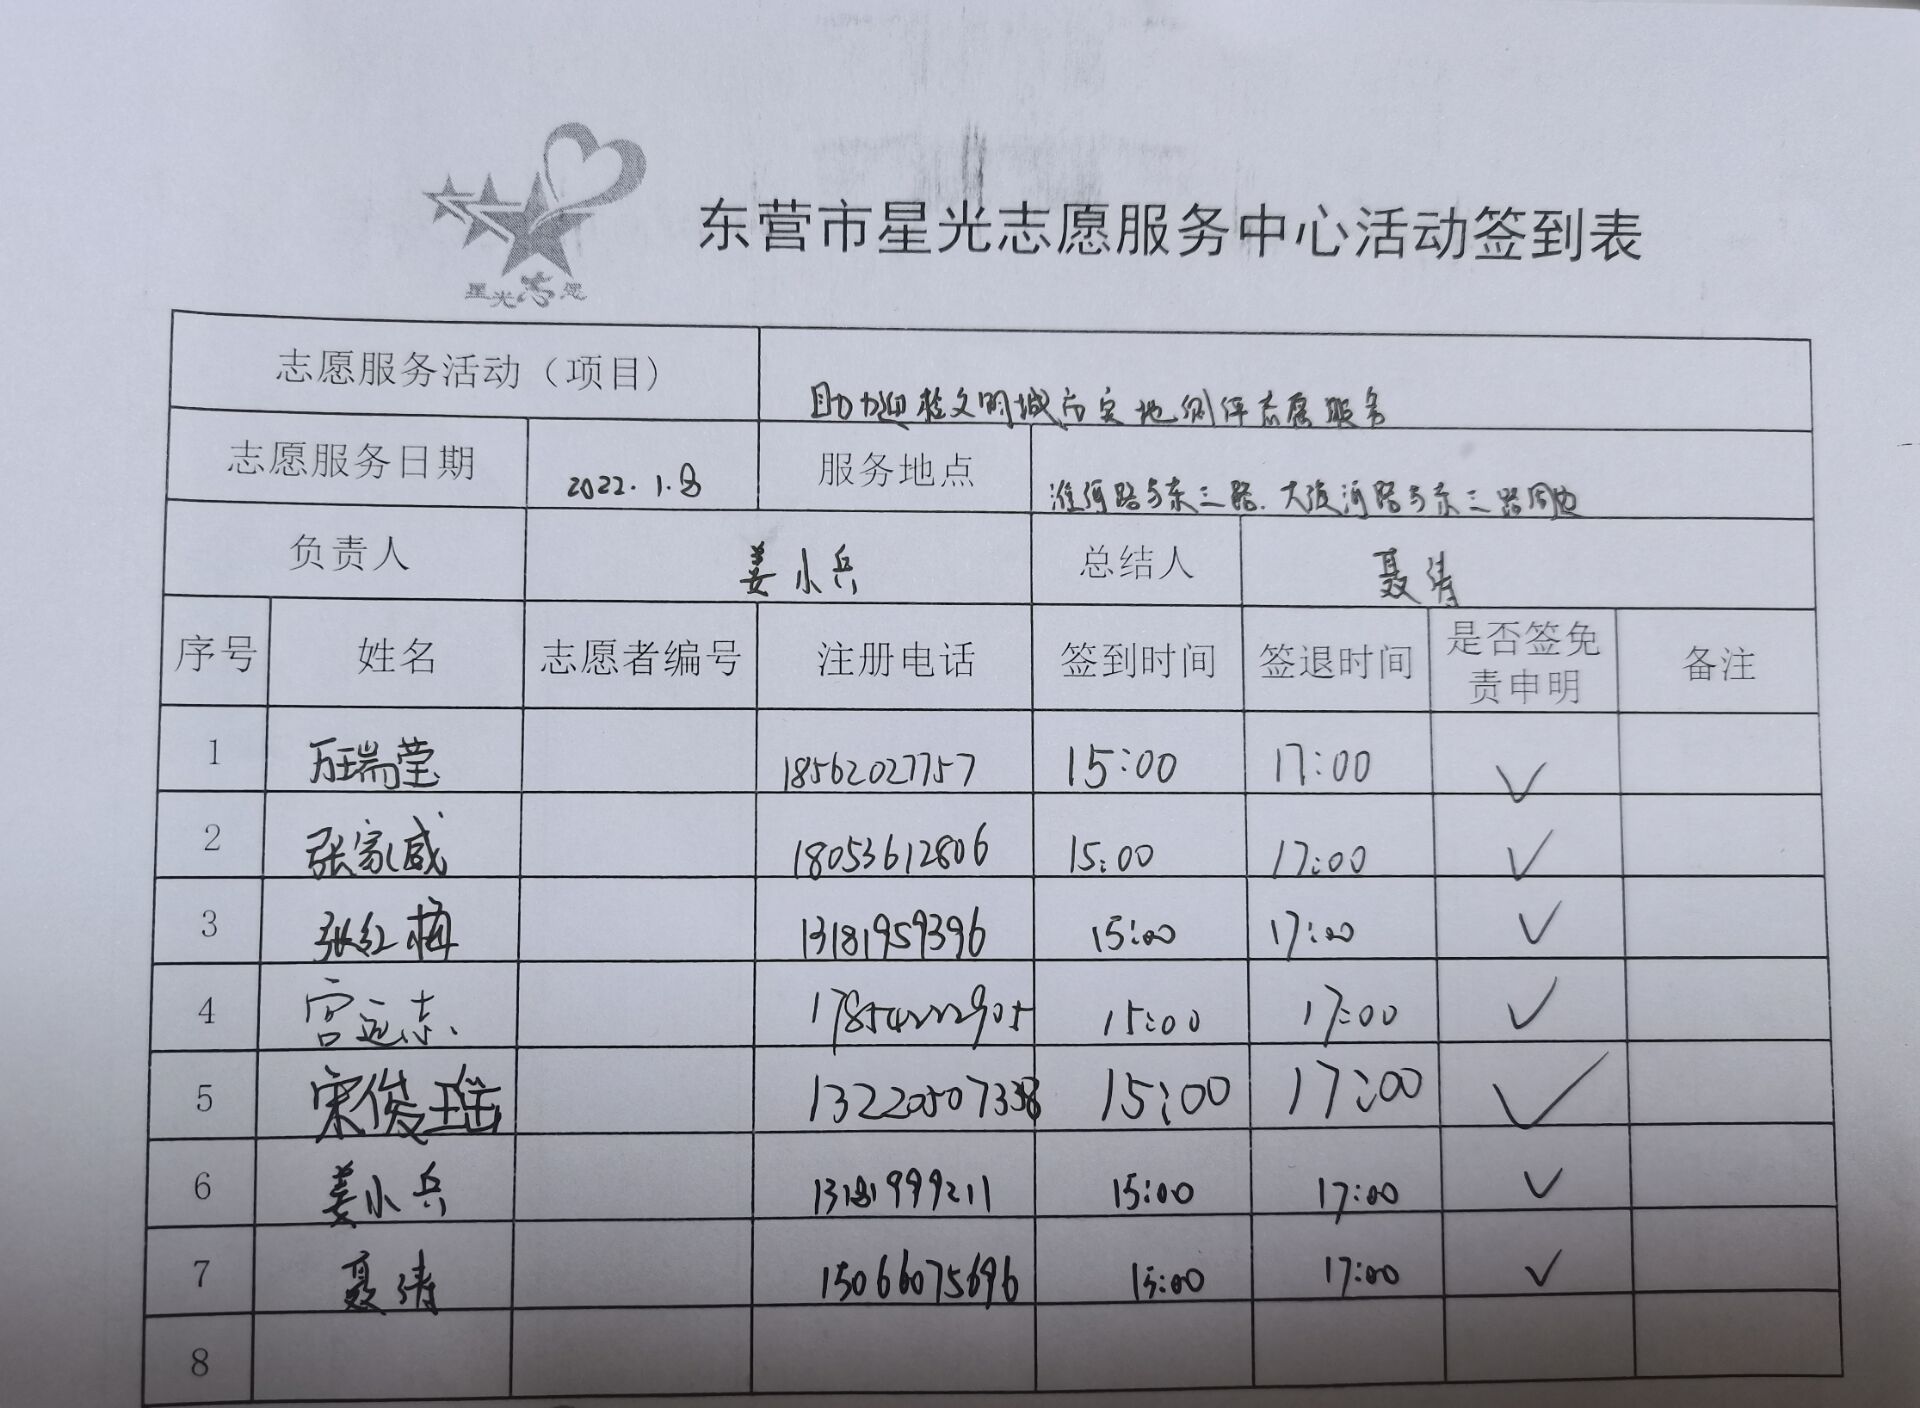 星光志愿
东营市星光志愿服务中心活动签到表
志愿服务活动（项目） 助力迎检文明城市实地测评志愿服务
志愿服务日期 2022.1.8 服务地点 淮河路与东三路.大渡河路与东三路周边
负责人 姜小兵 总结人 聂涛
序号 姓名 志愿者编号 注册电话 签到时间 签退时间 是否签免责申明 备注
1 万瑞莹 18562027757 15:00 17:00 ✓
2 张家威 18053612806 15:00 17:00 ✓
3 张红梅 13181959396 15:00 17:00 ✓
4 宫远志 17854222905 15:00 17:00 ✓
5 宋俊瑶 13220507338 15:00 17:00 ✓
6 姜小兵 13181999211 15:00 17:00 ✓
7 聂涛 15066075696 15:00 17:00 ✓
8